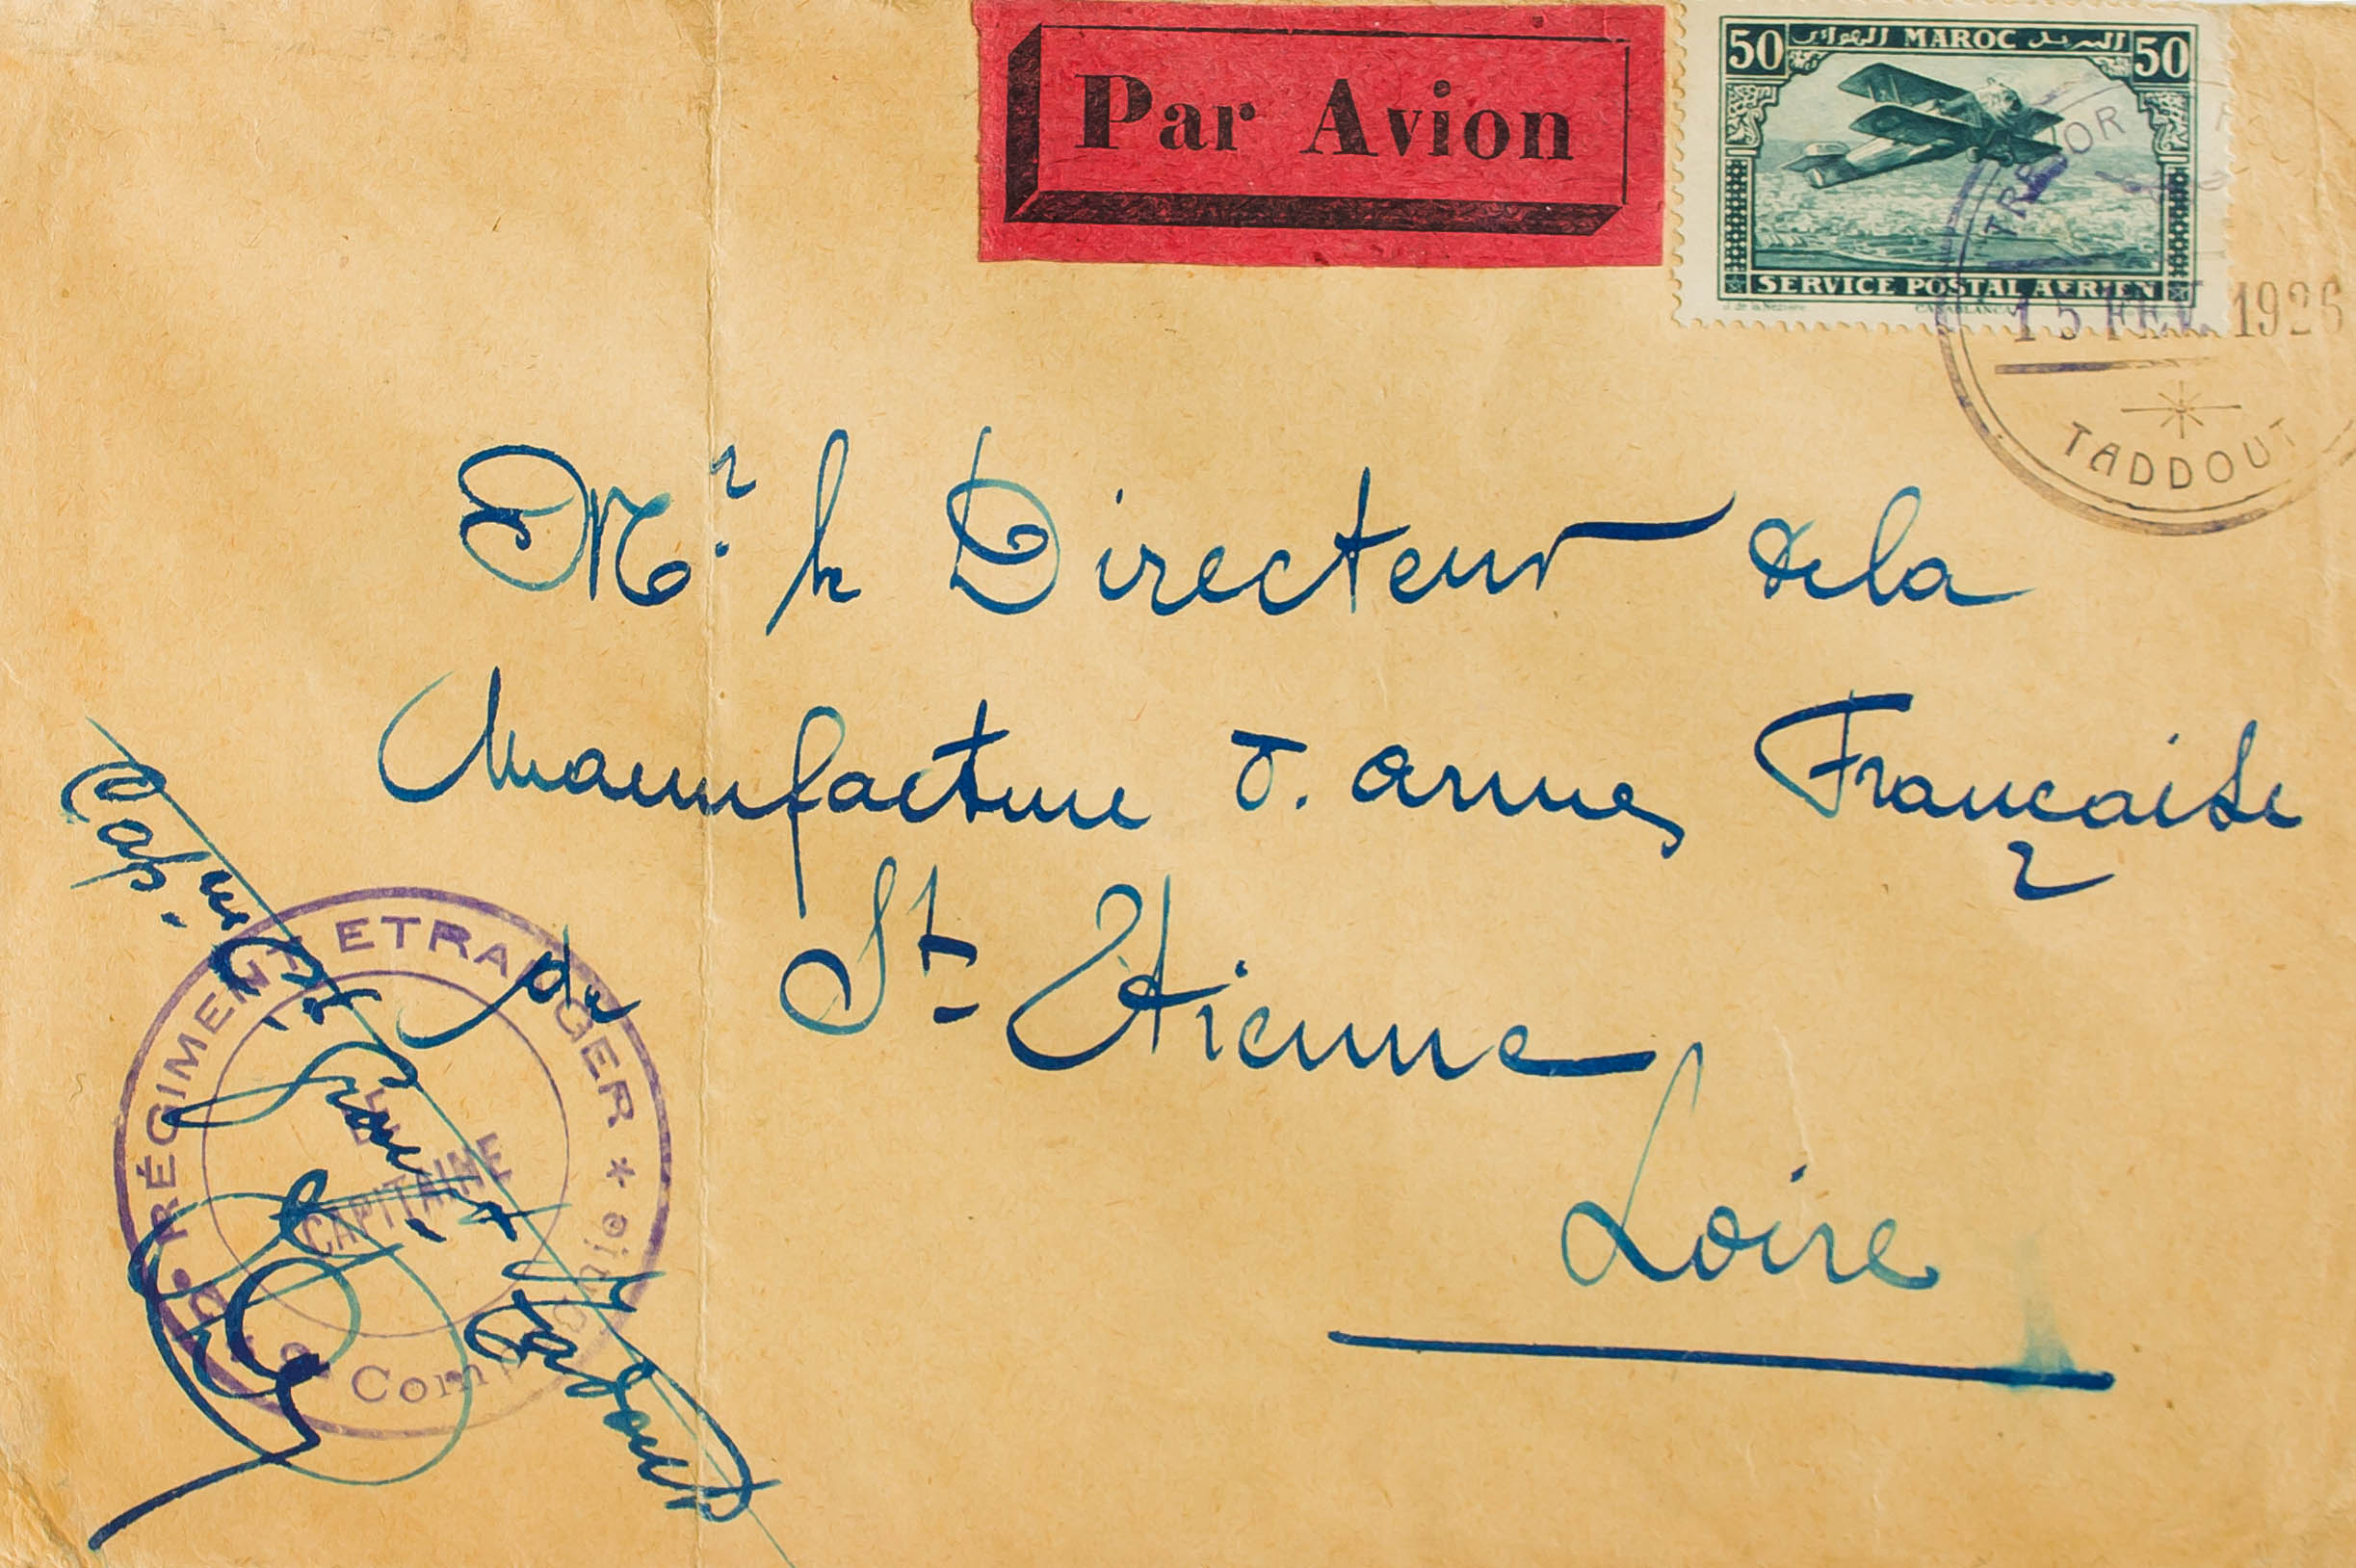 Par Avion
50 البريد الهوائي MAROC 50
SERVICE POSTAL AERIEN
J. de la Nézière CASABLANCA
TRESOR
15 FEV. 1926
TADDOUT
Mr. le Directeur de la
Manufacture d'armes Française
de St-Etienne
Loire
RÉGIMENT ETRANGER *
LE
CAPITAINE
Compagnie